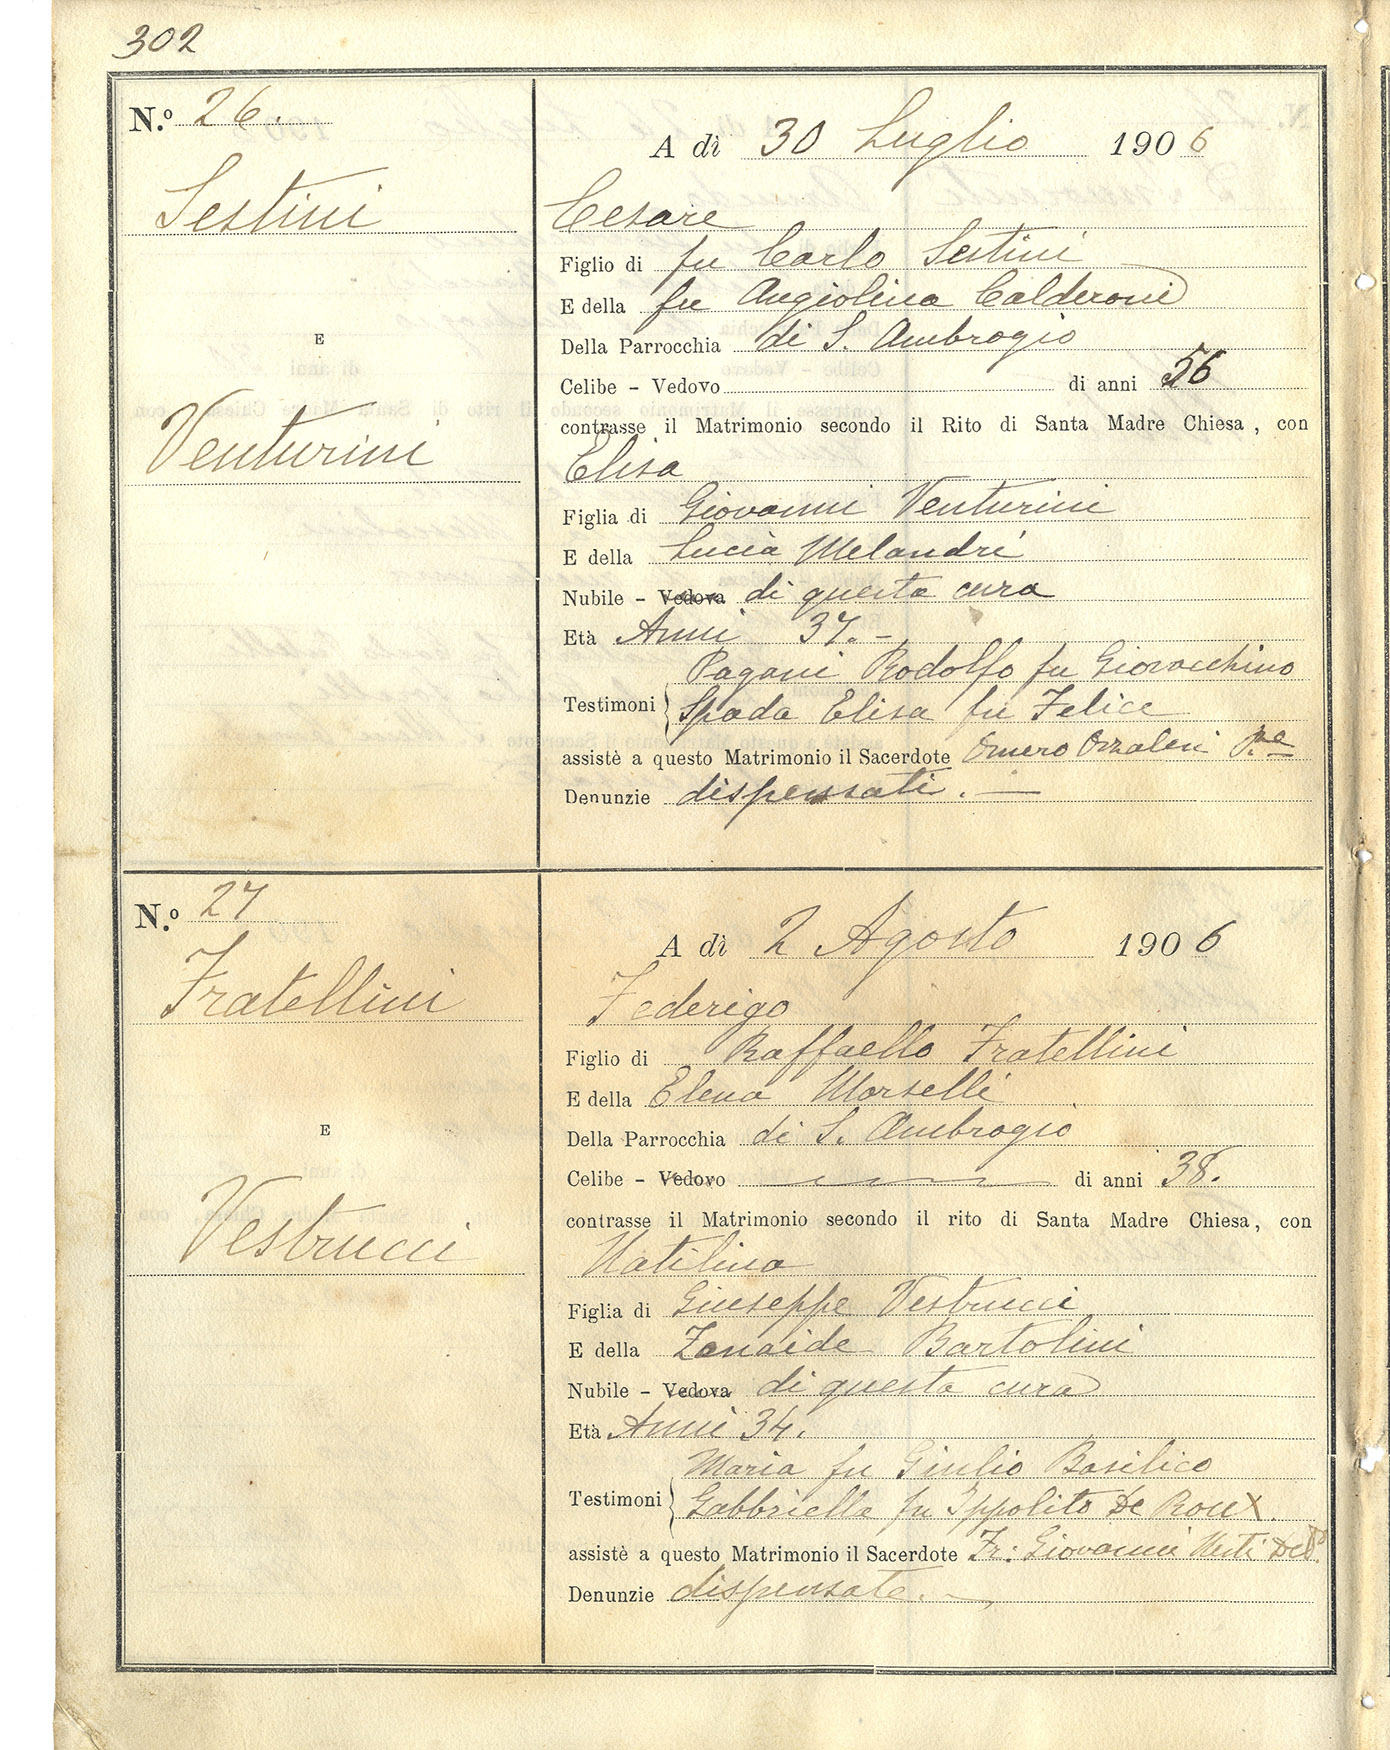 302
N.º 26.
Sestini
E
Venturini
A dì 30 Luglio 1906
Cesare
Figlio di fu Carlo Sestini
E della fu Angiolina Calderoni
Della Parrocchia di S. Ambrogio
Celibe – Vedovo di anni 56
contrasse il Matrimonio secondo il Rito di Santa Madre Chiesa, con
Elisa
Figlia di Giovanni Venturini
E della Lucia Melandri
Nubile – Vedova di questa cura
Età Anni 37. –
Pagani Rodolfo fu Giovacchino
Testimoni
Spada Elisa fu Felice
assistè a questo Matrimonio il Sacerdote Omero
Denunzie dispensati. —
N.º 27
Fratellini
E
Vestrucci
A dì 2 Agosto 1906
Federigo
Figlio di Raffaello Fratellini
E della Elena Morselli
Della Parrocchia di S. Ambrogio
Celibe – Vedovo di anni 38.
contrasse il Matrimonio secondo il rito di Santa Madre Chiesa, con
Natilina
Figlia di Giuseppe Vestrucci
E della Zenaide Bartolini
Nubile – Vedova di questa cura
Età Anni 34.
Maria fu Giulio Basilico
Testimoni
Gabbriella fu Ippolito De Roux.
assistè a questo Matrimonio il Sacerdote Fr: Giovanni
Denunzie dispensate. —